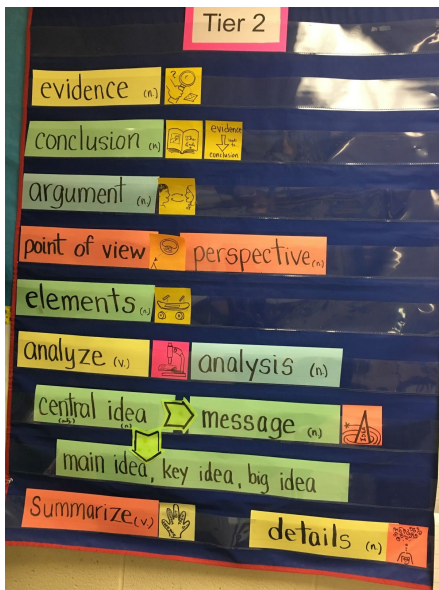 Tier 2
evidence (n.)
conclusion (n) evidence
conclusion
argument (n.)
point of view perspective (n)
elements (n)
analyze (v.) analysis (n)
central idea message (n)
(adj) (n)
main idea, key idea, big idea
Summarize (v.)
details (n.)